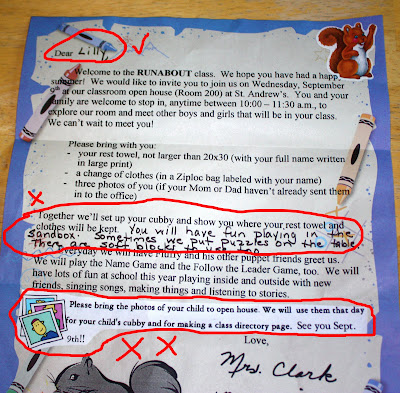 Dear Lilly,
Welcome to the RUNABOUT class. We hope you have had a happy
summer! We would like to invite you to join us on Wednesday, September
9th at our classroom open house (Room 200) at St. Andrew's. You and your
family are welcome to stop in, anytime between 10:00 – 11:30 a.m., to
explore our room and meet other boys and girls that will be in your class.
We can't wait to meet you!
Please bring with you:
- your rest towel, not larger than 20x30 (with your full name written
in large print)
- a change of clothes (in a Ziploc bag labeled with your name)
- three photos of you (if your Mom or Dad haven't already sent them
in to the office)
Together we'll set up your cubby and show you where your rest towel and
clothes will be kept. You will have fun playing in the
sandbox. Sometimes we put puzzles on the table
There are soft blocks to
Everyday we will have Fluffy and his other puppet friends greet us.
We will play the Name Game and the Follow the Leader Game, too. We will
have lots of fun at school this year playing inside and outside with new
friends, singing songs, making things and listening to stories.
Please bring the photos of your child to open house. We will use them that day
for your child's cubby and for making a class directory page. See you Sept.
9th!!
Love,
Mrs. Clark